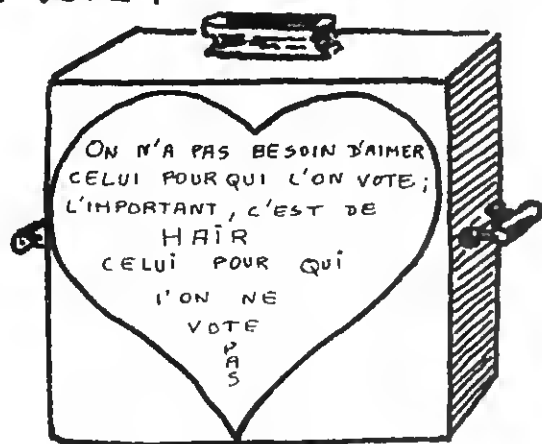 ON N'A PAS BESOIN D'AIMER
CELUI POUR QUI L'ON VOTE;
L'IMPORTANT, C'EST DE
HAÏR
CELUI POUR QUI
L'ON NE
VOTE
PAS